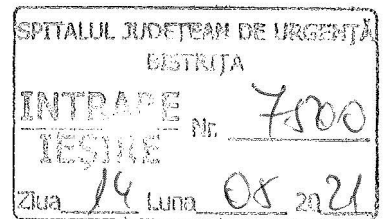 SPITALUL JUDEȚEAN DE URGENȚĂ
BISTRIȚA
INTRARE
IEȘIRE Nr. 7500
Ziua 14 Luna 08 2021